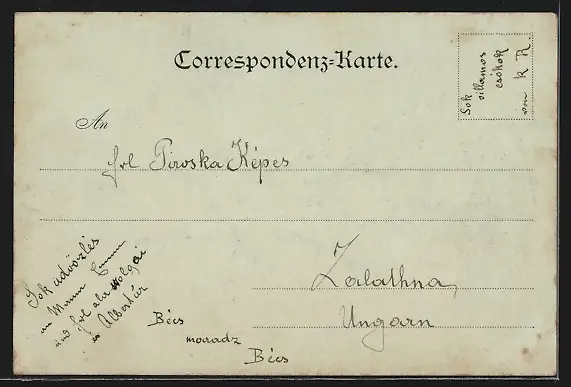 Correspondenz-Karte.
Sok
villamos
csókok
von K R.
An
frl Piroska Képes
Zalathna,
Ungarn
Sok üdvözlés
an Mama
und frl
Albertár
Bécs
maradz
Bécs